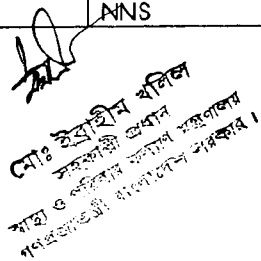 NNS
মোঃ ইব্রাহীম খলিল
সহকারী প্রধান
স্বাস্থ্য ও পরিবার কল্যাণ মন্ত্রণালয়
গণপ্রজাতন্ত্রী বাংলাদেশ সরকার।